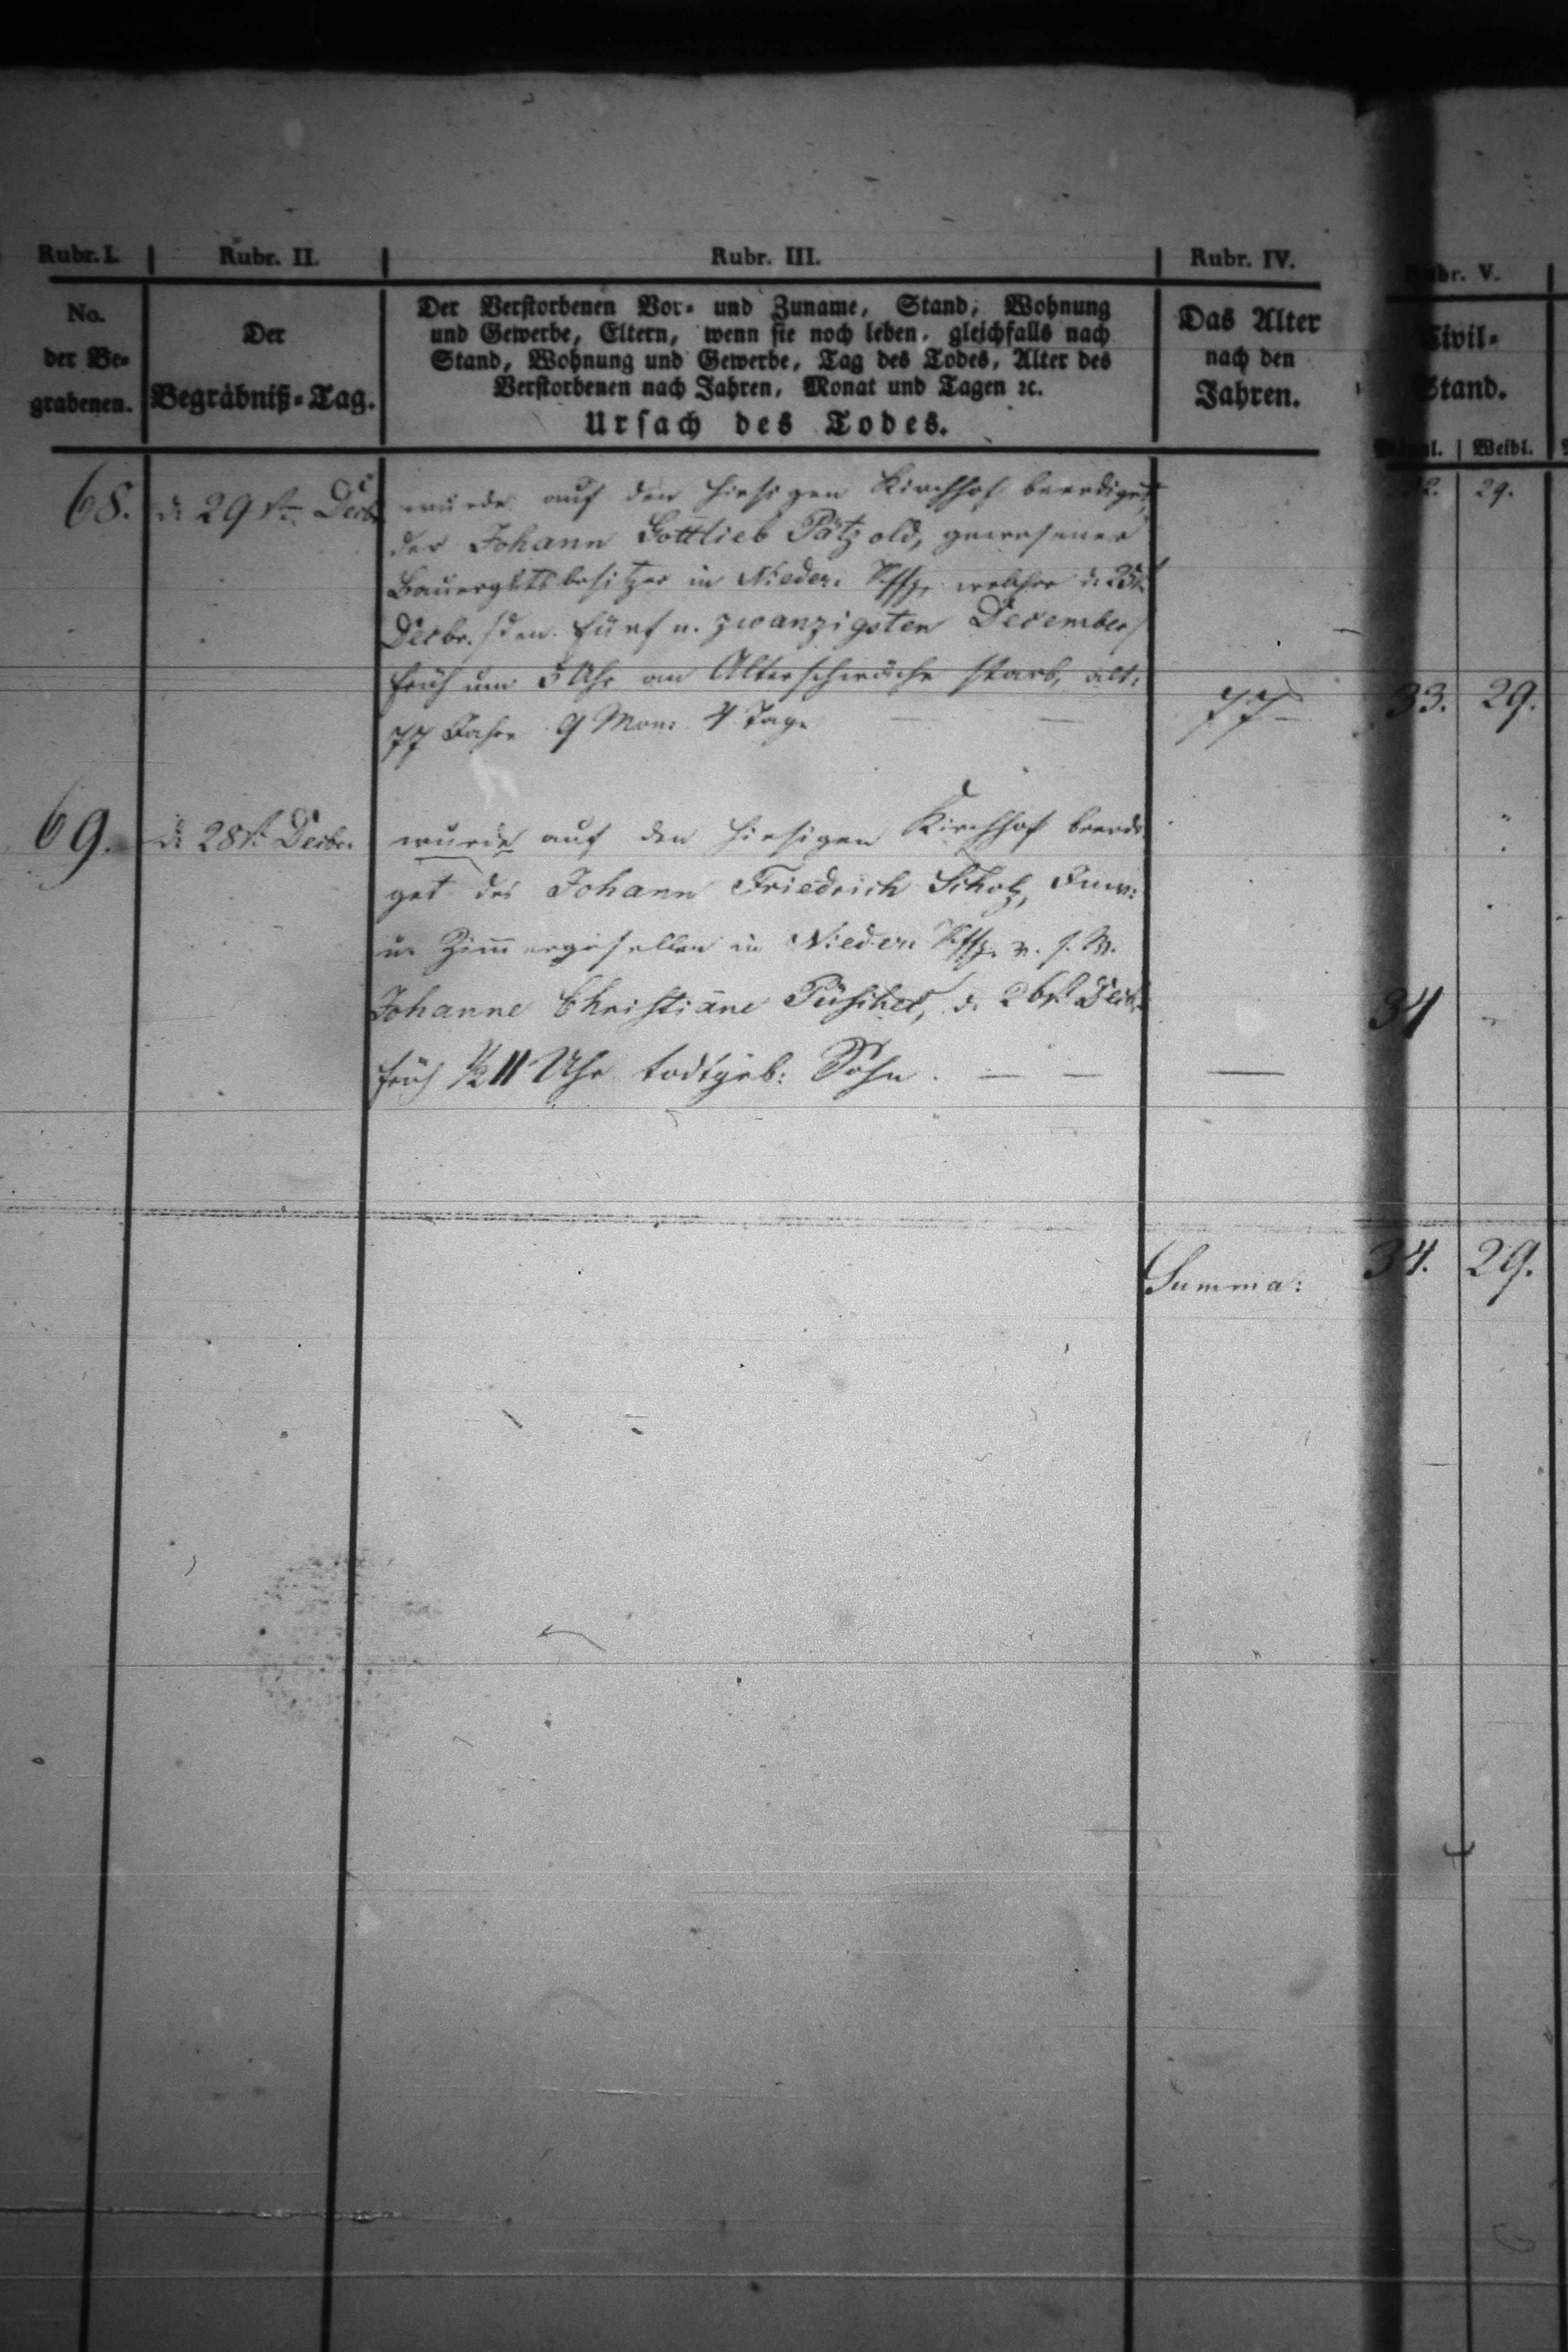 Rubr. I. Rubr. II. Rubr. III. Rubr. IV.
No.
der Be-
grabenen.
Der
Begräbniß-Tag.
Der Verstorbenen Vor- und Zuname, Stand, Wohnung
und Gewerbe, Eltern, wenn sie noch leben, gleichfalls nach
Stand, Wohnung und Gewerbe, Tag des Todes, Alter des
Verstorbenen nach Jahren, Monat und Tagen ꝛc.
Ursach des Todes.
Das Alter
nach den
Jahren.
68. d. 29st. Decbr. wurde auf den hiesigen Kirchhof beerdiget,
der Johann Gottlieb Pätzold, gewesener
Bauergutsbesitzer in Nieder welcher d. 25st.
Decbr. /den fünf u. zwanzigsten December/
früh um 5 Uhr an Alterschwäche starb, alt:
77 Jahre 9 Mon: 4 Tage — — 77
69. d. 28st. Decbr. wurde auf den hiesigen Kirchhof beerdi
get des Johann Friedrich Scholz, Inw:
u. Zimmergesellen in Nieder v. s. W.
Johanne Christiane d. 26st. Decbr.
früh ½ 11 Uhr todtgeb: Sohn. — — —
Summa:
Rubr. V.
Civil-
Stand.
Männl. Weibl.
32. 29.
33. 29.
34 "
34. 29.